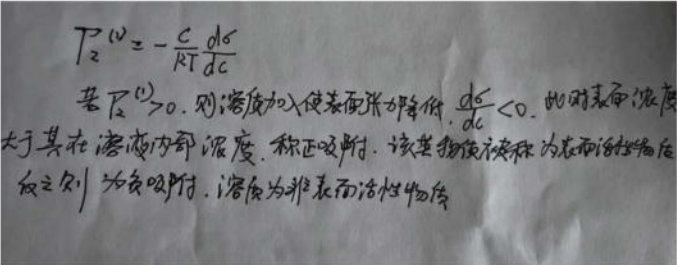 Γ₂⁽¹⁾ = - C/RT dσ/dc
若Γ₂⁽¹⁾>0. 则溶质加入使表面张力降低, dσ/dc <0. 此时表面浓度
大于其在溶液内部浓度. 称正吸附. 该类物质被称为表面活性物质
反之则为负吸附. 溶质为非表面活性物质